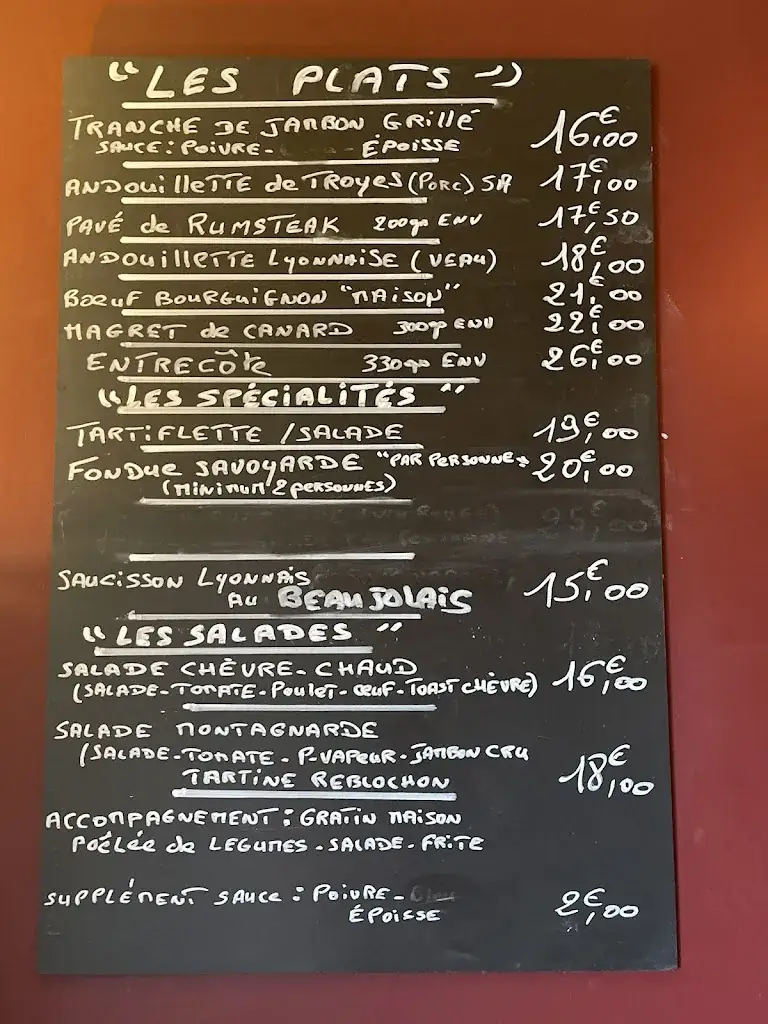 "LES PLATS"
TRANCHE DE JAMBON GRILLÉ 16€,00
SAUCE: POIVRE - - ÉPOISSE
ANDOUILLETTE de TROYES (PORC) 5A 17€,00
PAVÉ de RUMSTEAK 200gr ENV 17€,50
ANDOUILLETTE LYONNAISE (VEAU) 18€,00
BŒUF BOURGUIGNON "MAISON" 21€,00
MAGRET de CANARD 300gr ENV 22€,00
ENTRECÔTE 330gr ENV 26€,00
"LES SPÉCIALITÉS"
TARTIFLETTE / SALADE 19€,00
FONDUE SAVOYARDE "PAR PERSONNE" 20€,00
(MINIMUM 2 PERSONNES)
25€,00
SAUCISSON LYONNAIS
AU BEAUJOLAIS 15€,00
"LES SALADES"
SALADE CHÈVRE-CHAUD
(SALADE-TOMATE-POULET-ŒUF-TOAST CHÈVRE) 16€,00
SALADE MONTAGNARDE
(SALADE-TOMATE-P-VAPEUR-JAMBON CRU
TARTINE REBLOCHON 18€,00
ACCOMPAGNEMENT: GRATIN MAISON
POÊLÉE de LEGUMES - SALADE - FRITE
SUPPLÉMENT SAUCE: POIVRE - Bleu
ÉPOISSE 2€,00